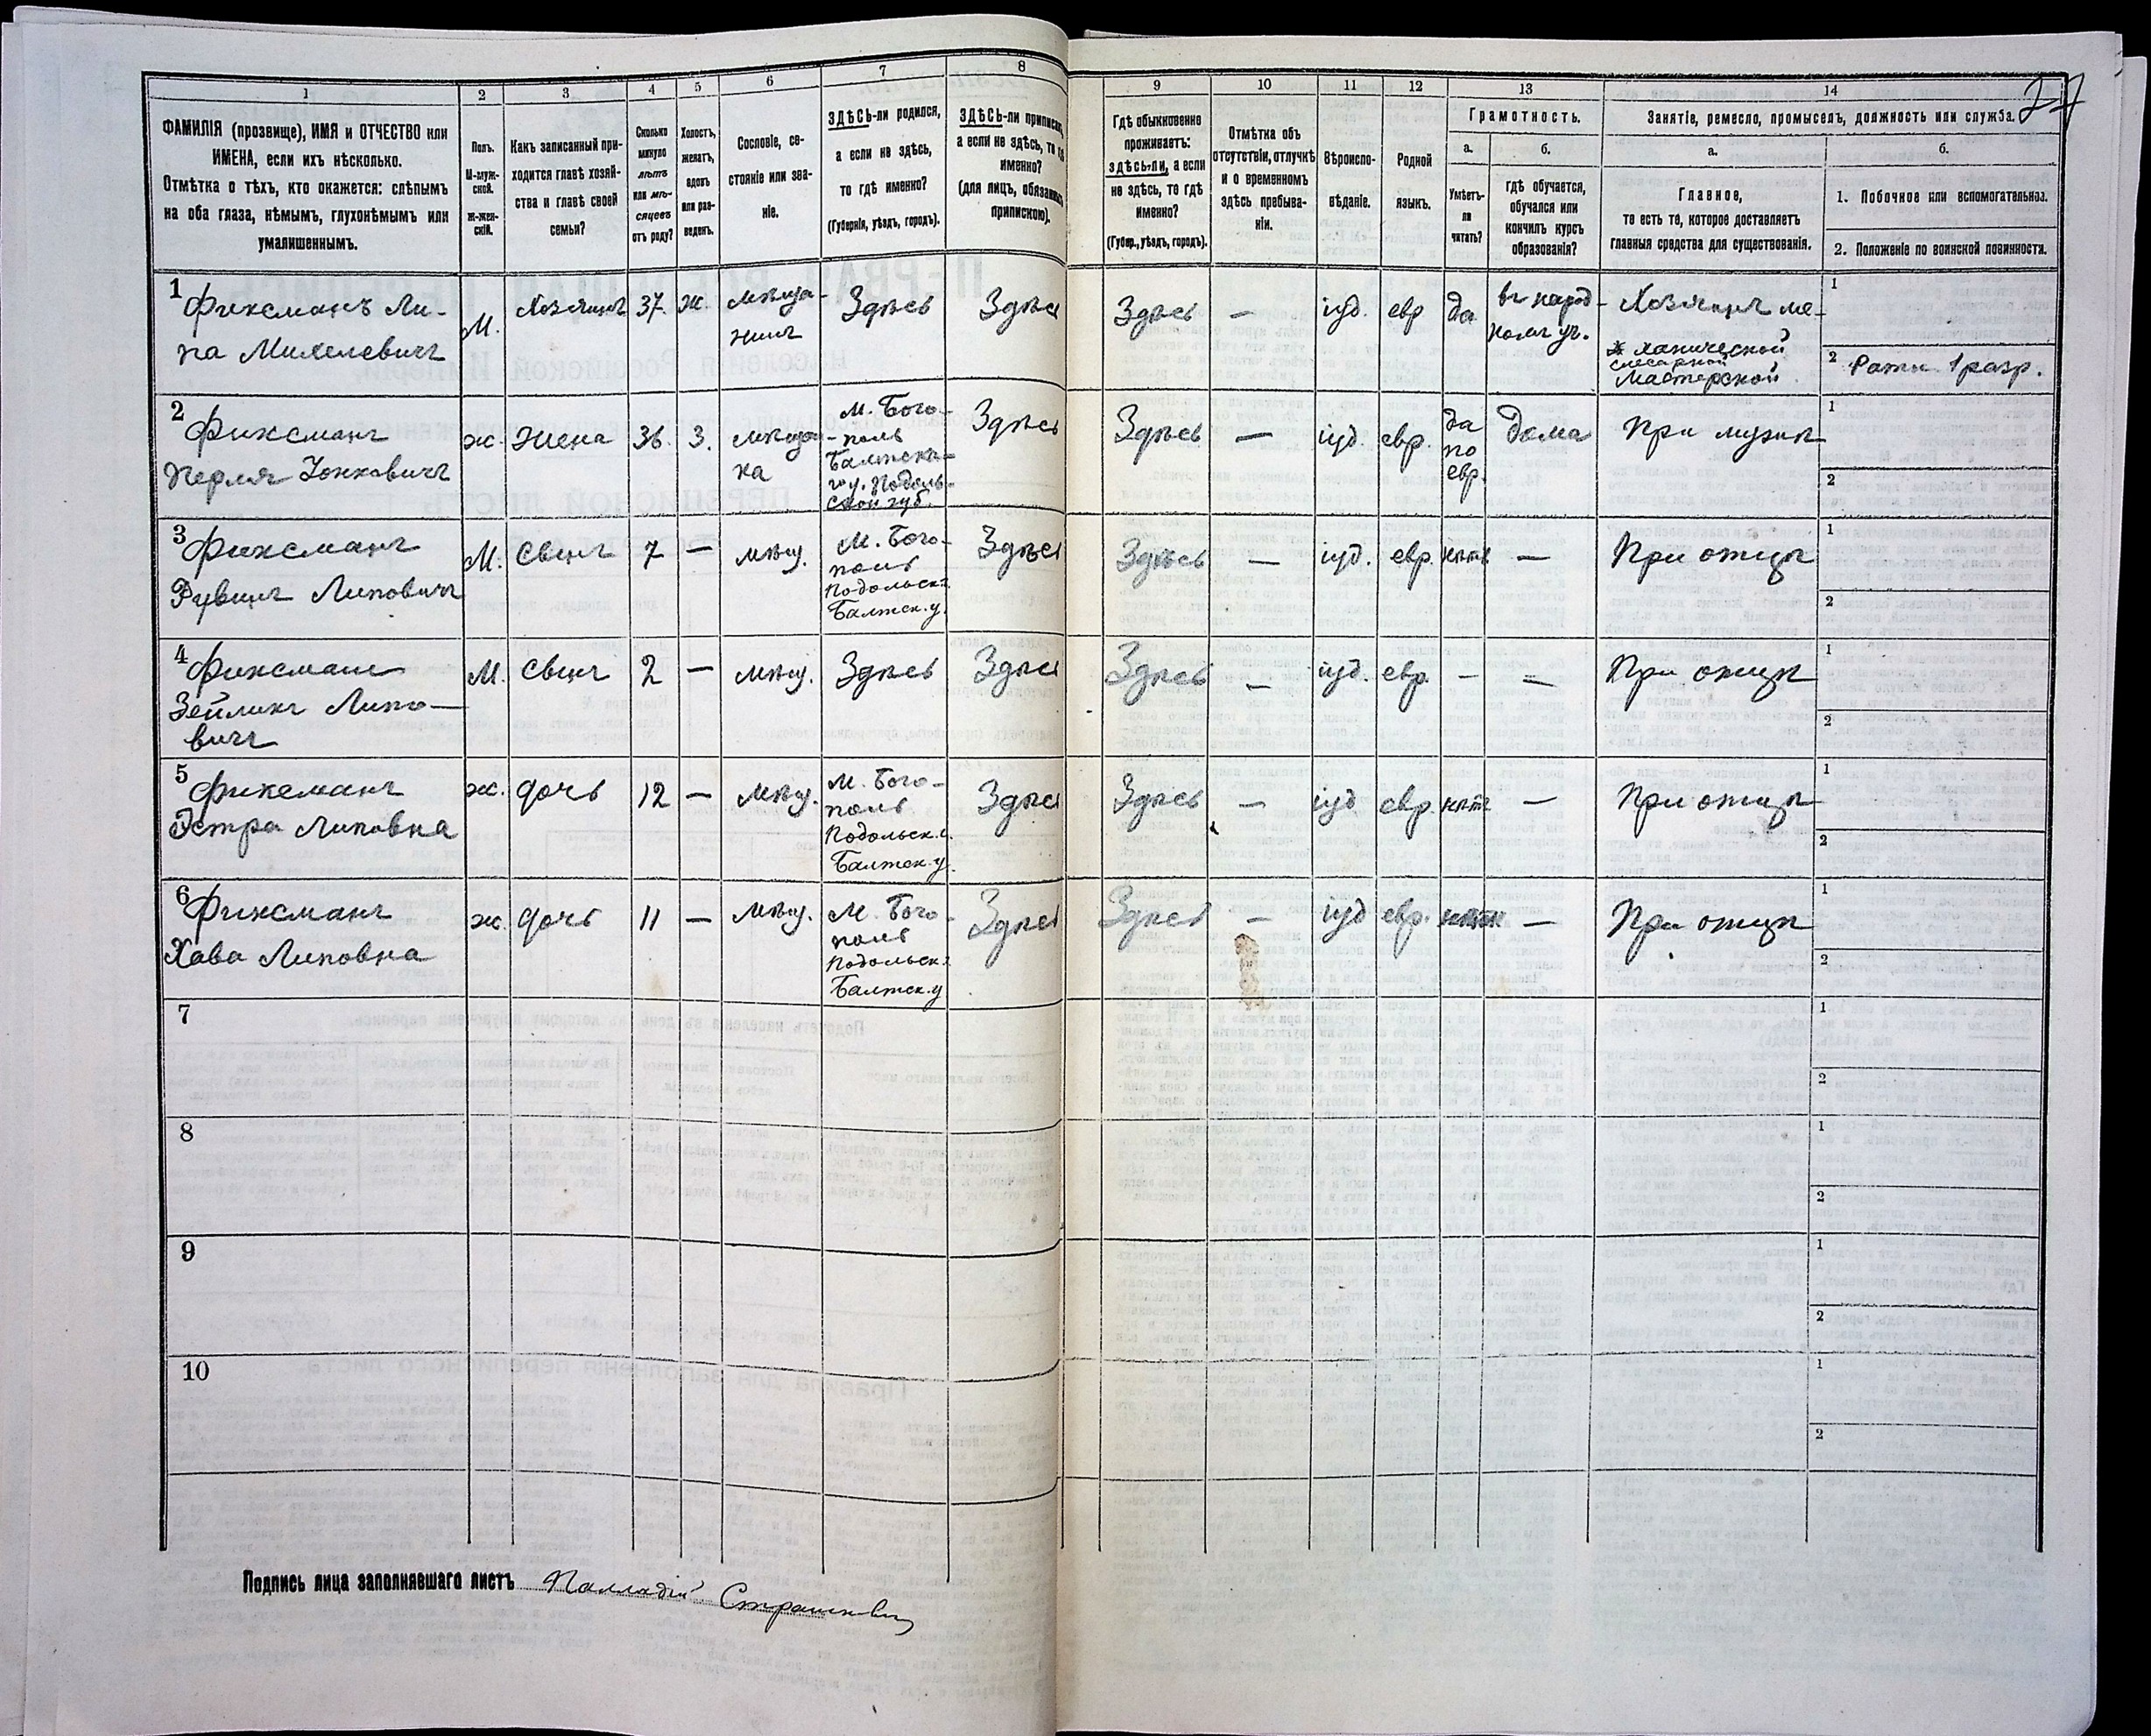 1 2 3 4 5 6 7 8 9 10 11 12 13 14
27
ФАМИЛІЯ (прозвище), ИМЯ и ОТЧЕСТВО или
ИМЕНА, если ихъ нѣсколько.
Отмѣтка о тѣхъ, кто окажется: слѣпымъ
на оба глаза, нѣмымъ, глухонѣмымъ или
умалишеннымъ.
Полъ.
М-муж-
ской.
Ж-жен-
скій.
Какъ записанный при-
ходится главѣ хозяй-
ства и главѣ своей
семьи?
Сколько
минуло
лѣтъ
или мѣ-
сяцевъ
отъ роду?
Холостъ,
женатъ,
вдовъ
или раз-
веденъ.
Сословіе, со-
стояніе или зва-
ніе.
ЗДѢСЬ-ли родился,
а если не здѣсь,
то гдѣ именно?
(Губернія, уѣздъ, городъ).
ЗДѢСЬ-ли приписанъ,
а если не здѣсь, то гдѣ
именно?
(для лицъ, обязанныхъ
припискою).
Гдѣ обыкновенно
проживаетъ:
здѣсь-ли, а если
не здѣсь, то гдѣ
именно?
(Губер., уѣздъ, городъ).
Отмѣтка объ
отсутствіи, отлучкѣ
и о временномъ
здѣсь пребыва-
ніи.
Вѣроиспо-
вѣданіе.
Родной
языкъ.
Грамотность.
а.
Умѣетъ-
ли
читать?
б.
гдѣ обучается,
обучался или
кончилъ курсъ
образованія?
Занятіе, ремесло, промыселъ, должность или служба.
а.
Главное,
то есть то, которое доставляетъ
главныя средства для существованія.
б.
1. Побочное или вспомогательное.
2. Положеніе по воинской повинности.
1 Фиксманъ Ли-
па Михелевичъ
М.
Хозяинъ
37.
Ж.
мѣща-
нинъ
Здѣсь
Здѣсь
Здѣсь
—
іуд.
евр
да
въ народ-
номъ уч.
Хозяинъ ме-
ханической
слесарной
мастерской
1
2 Ратн. 1 разр.
2 Фиксманъ
Перля Іонковичъ
ж.
Жена
36.
3.
мѣщан-
ка
М. Бого-
поль
Балтска-
го у. Подоль-
ской губ.
Здѣсь
Здѣсь
—
іуд.
евр.
да
по
евр.
дома
При мужѣ
1
2
3 Фиксманъ
Рувинъ Липовичъ
М.
Свинъ
7
—
мѣщ.
М. Бого-
поль
Подольск.
Балтск. у.
Здѣсь
Здѣсь
—
іуд.
евр.
нѣтъ
—
При отцѣ
1
2
4 Фиксманъ
Зейликъ Липо-
вичъ
М.
Свинъ
2
—
мѣщ.
Здѣсь
Здѣсь
Здѣсь
—
іуд.
евр.
—
—
При отцѣ
1
2
5 Фиксманъ
Эстра Липовна
ж.
дочь
12
—
мѣщ.
М. Бого-
поль
Подольск. г.
Балтск. у.
Здѣсь
Здѣсь
—
іуд
евр.
нѣтъ
—
При отцѣ
1
2
6 Фиксманъ
Хава Липовна
ж.
дочь
11
—
мѣщ.
М. Бого-
поль
Подольск.
Балтск. у
Здѣсь
Здѣсь
—
іуд
евр.
нѣтъ
—
При отцѣ
1
2
7
1
2
8
1
2
9
1
2
10
1
2
Подпись лица заполнявшаго листъ Палладій Страшкевич